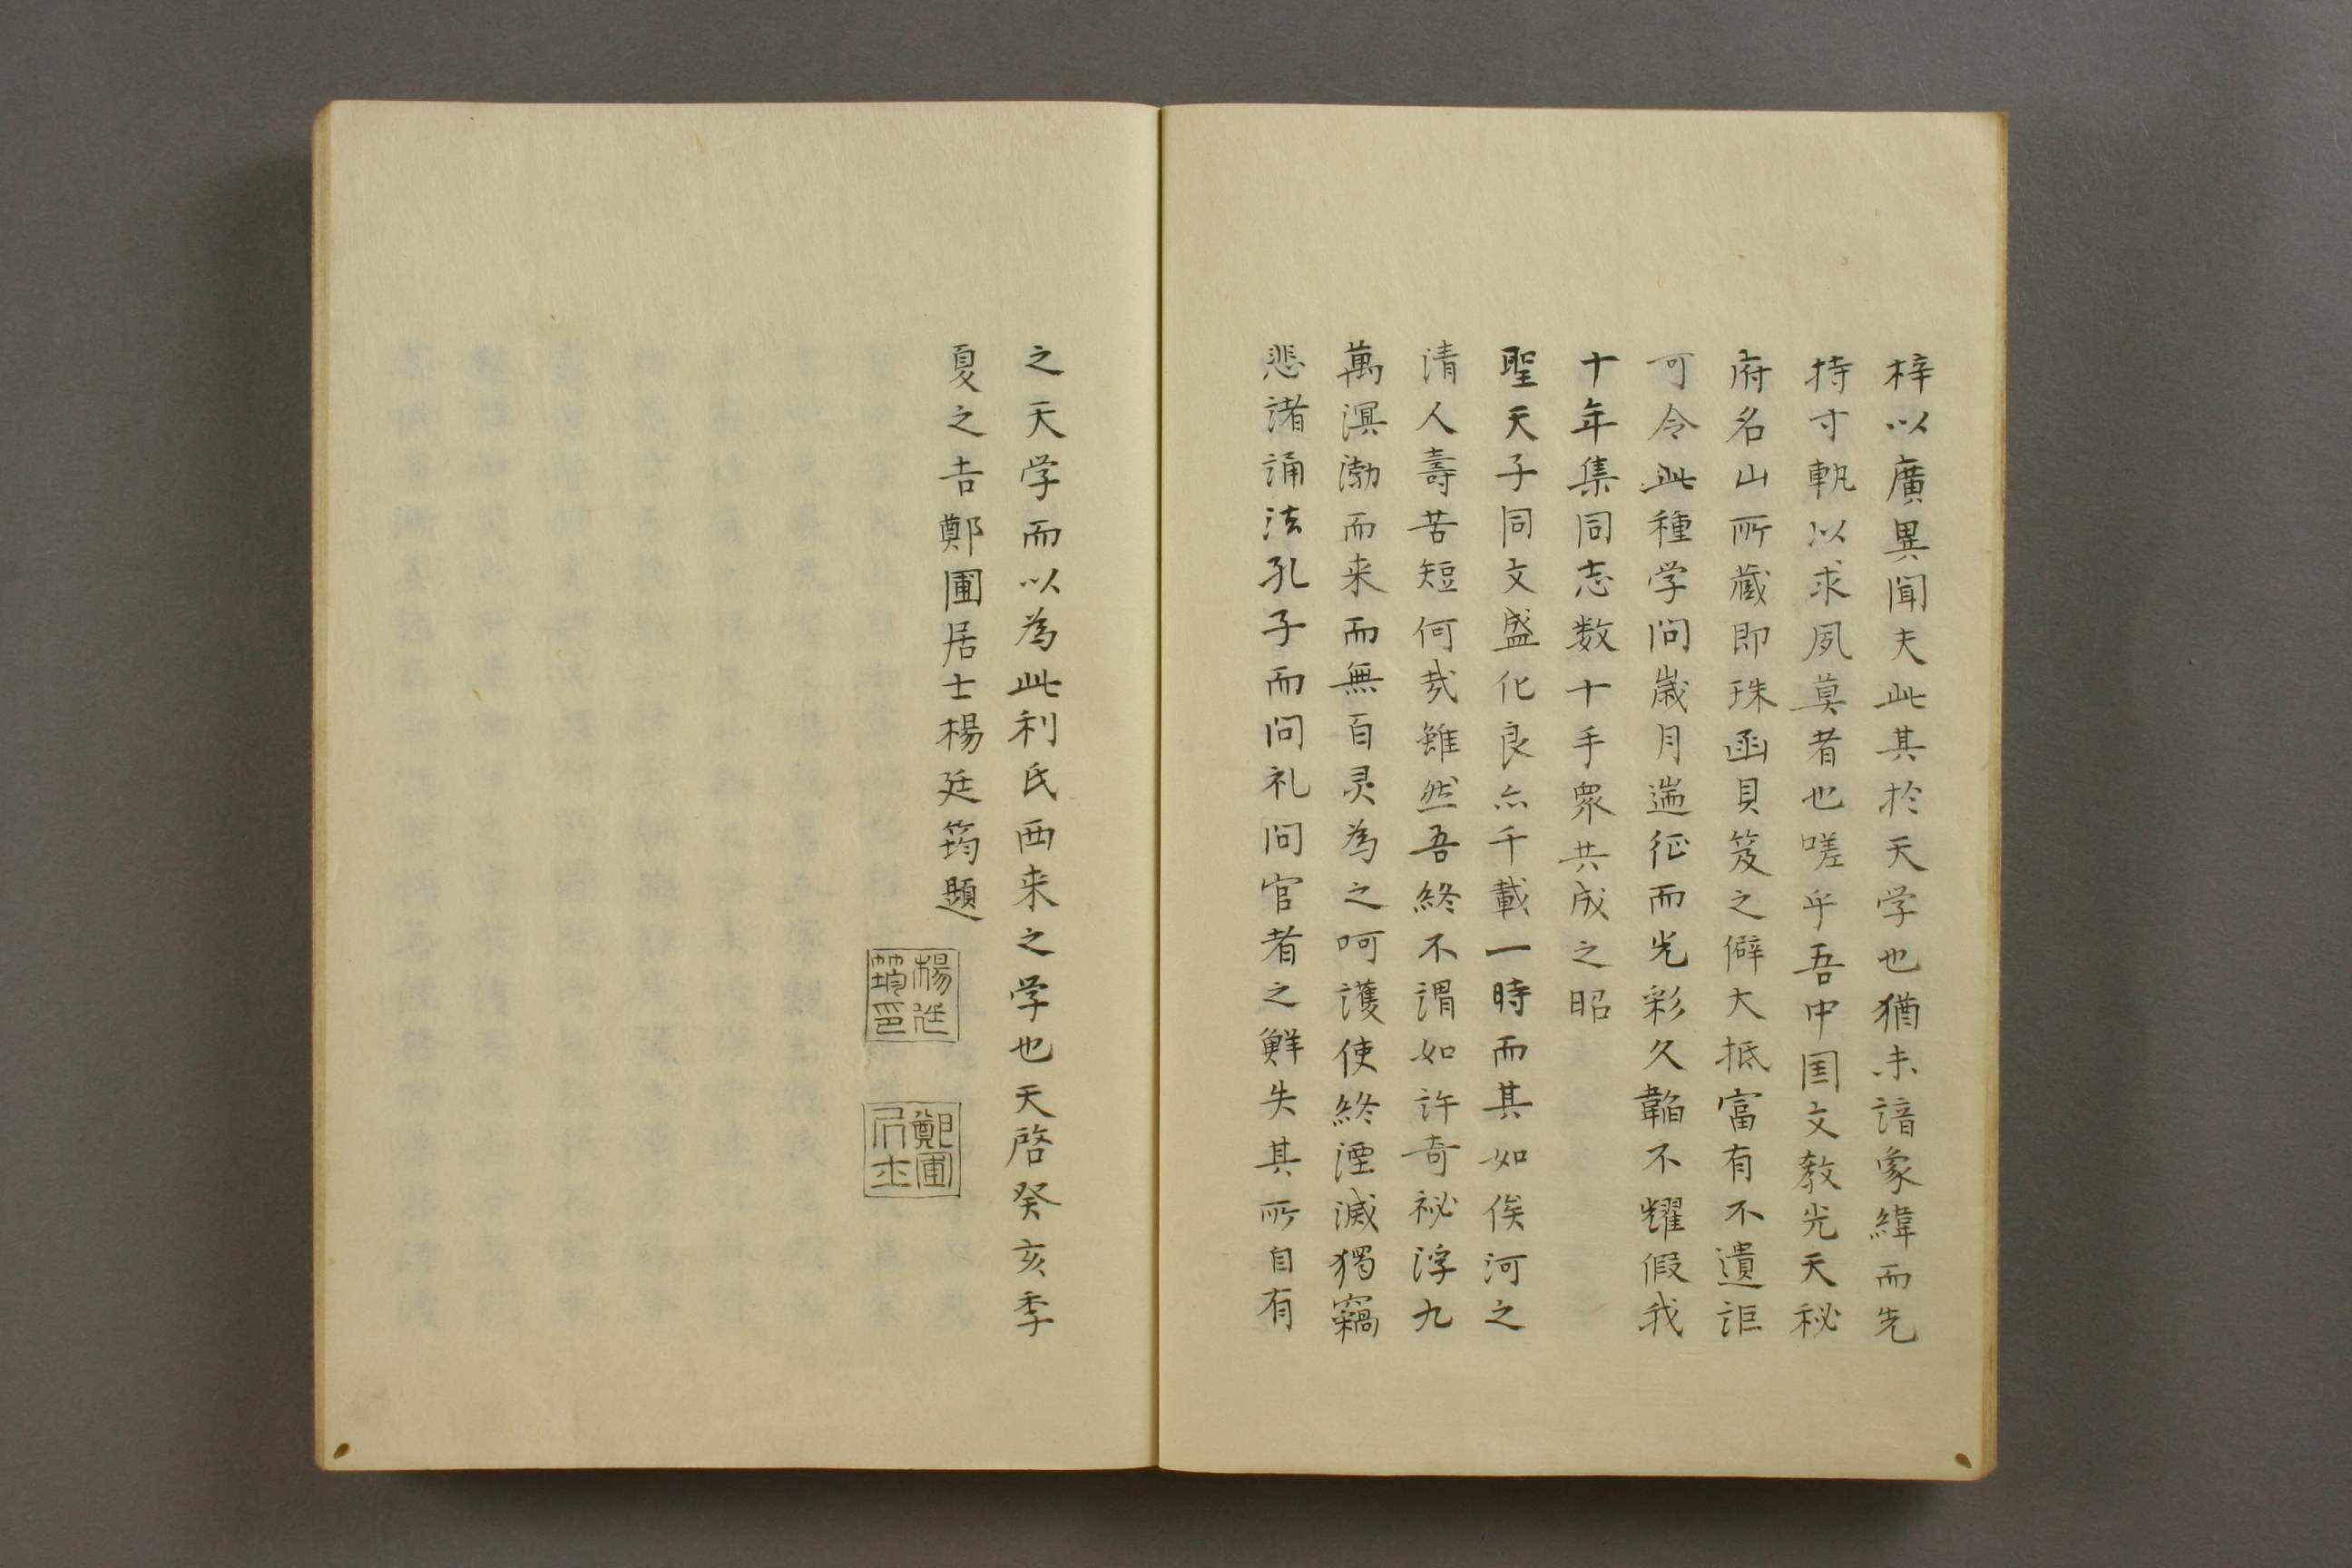 梓以廣異聞夫此其於天学也猶未諳象緯而先
持寸軌以求夙莫者也嗟乎吾中国文教光天秘
府名山所蔵即珠函貝笈之僻大抵富有不遺詎
可令此種学問歳月遄征而光彩久韜不耀假我
十年集同志数十手衆共成之昭
聖天子同文盛化良亦千載一時而其如俟河之
清人壽苦短何哉雖然吾終不謂如許奇祕浮九
萬溟渤而来而無百灵為之呵護使終湮滅獨竊
悲諸誦法孔子而問礼問官者之鮮失其所自有
之天学而以為此利氏西来之学也天啓癸亥季
夏之吉鄭圃居士楊廷筠題
楊廷筠印
鄭圃居士